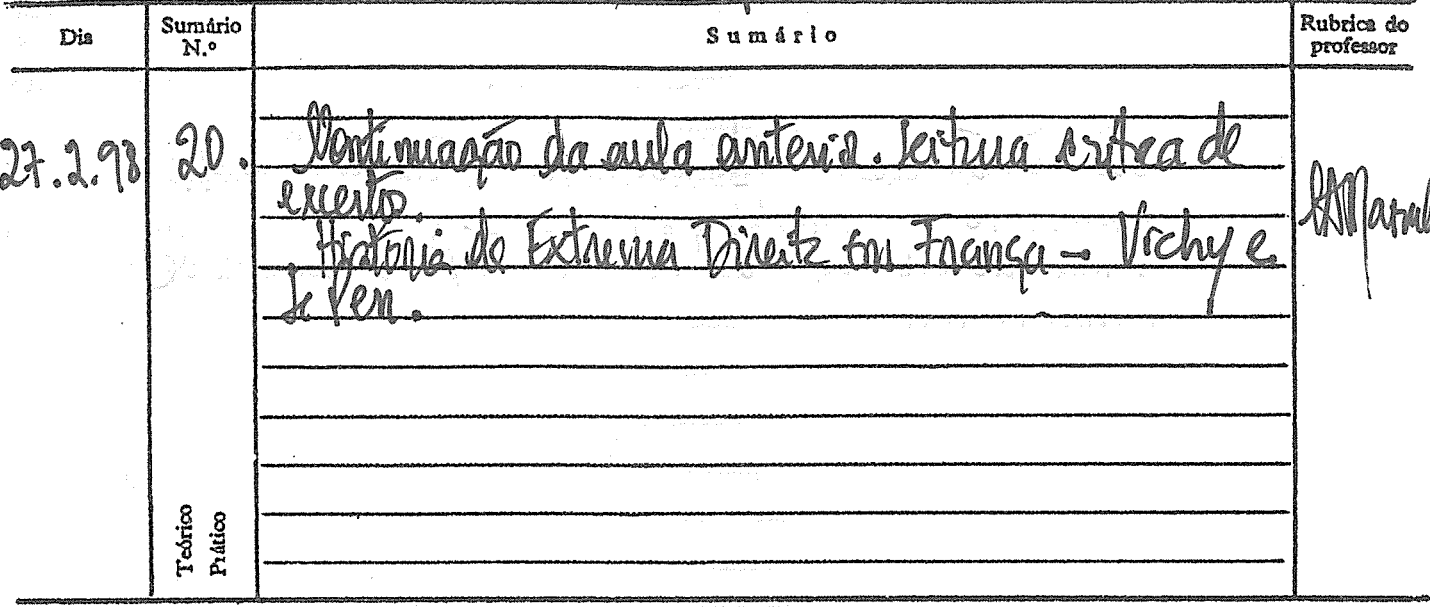 Dia
Sumário N.º
Sumário
Rubrica do professor
27.2.98
20.
Continuação da aula anterior. Leitura crítica de
excertos.
História da Extrema Direita em França – Vichy e
Le Pen.
Teórico
Prático